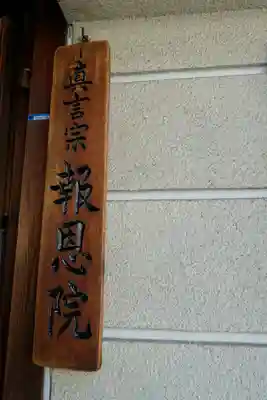 真言宗報恩院